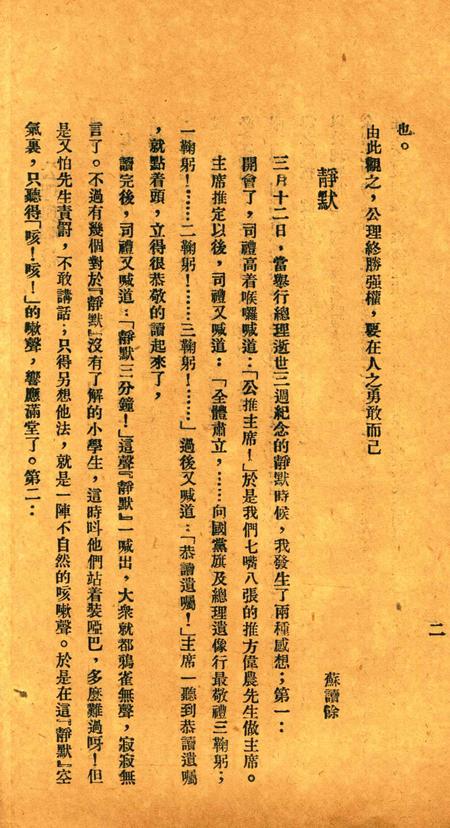 也。
由此觀之，公理終勝强權，要在人之勇敢而已
靜默
蘇讀餘
三月十二日，當舉行總理逝世三週紀念的靜默時候，我發生了兩種感想；第一：
開會了，司禮高着喉嚨喊道：「公推主席！」於是我們七嘴八張的推方偉農先生做主席。
主席推定以後，司禮又喊道：「全體肅立，……向國黨旗及總理遺像行最敬禮三鞠躬；
一鞠躬！……二鞠躬！……三鞠躬！……」過後又喊道：「恭讀遺囑！」主席一聽到恭讀遺囑
，就點着頭，立得很恭敬的讀起來了，
讀完後，司禮又喊道：「靜默三分鐘！」這聲『靜默』一喊出，大衆就都鴉雀無聲，寂寂無
言了。不過有幾個對於『靜默』沒有了解的小學生，這時呌他們站着裝啞巴，多麽難過呀！但
是又怕先生責罰，不敢講話；只得另想他法，就是一陣不自然的咳嗽聲。於是在這『靜默』空
氣裏，只聽得「咳！咳！」的嗽聲，響應滿堂了。第二：
二